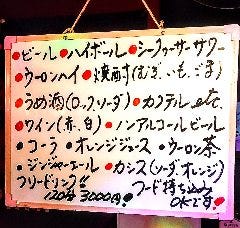 ●ビール ●ハイボール ●シークヮーサーサワー
●ウーロンハイ ●焼酎(むぎ、いも、ごま)
●うめ酒(ロック、ソーダ) ●カクテル etc.
●ワイン(赤、白) ●ノンアルコールビール
●コーラ ●オレンジジュース ●ウーロン茶
●ジンジャーエール ●カシス(ソーダ、オレンジ)
フリードリンク!! フード持ち込み
120分 3000円! OKです!